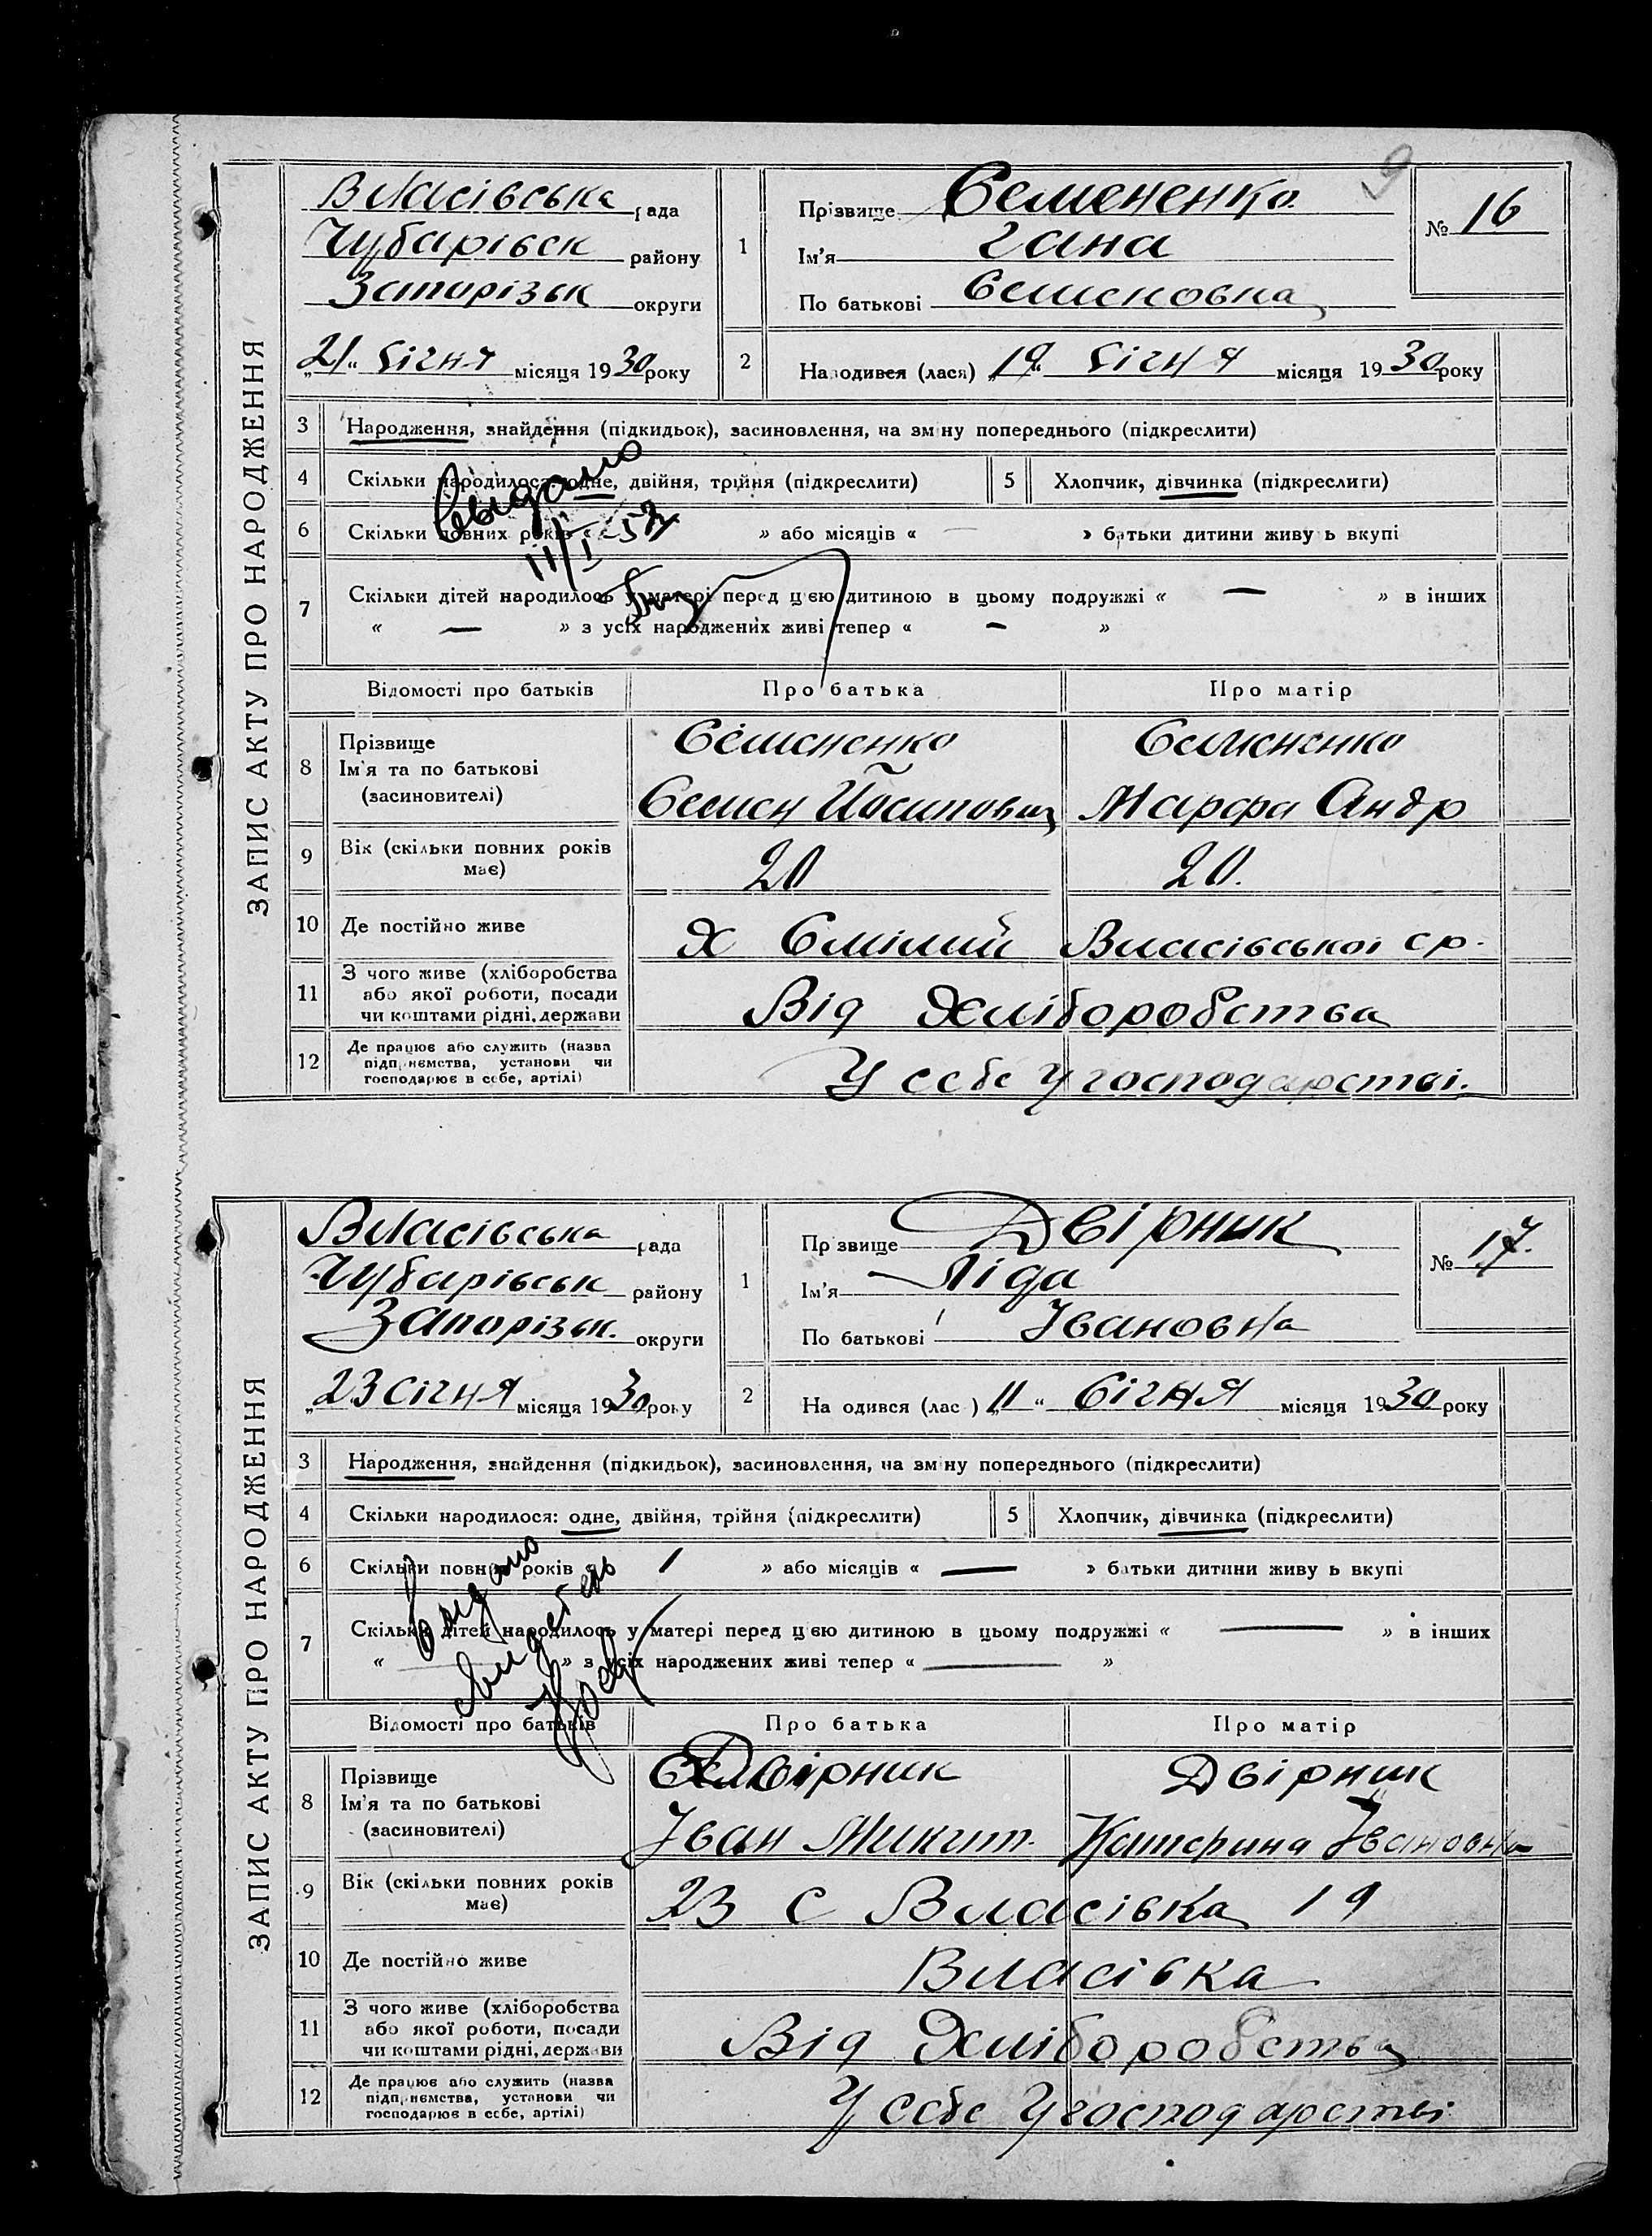 9
ЗАПИС АКТУ ПРО НАРОДЖЕННЯ
Власівська рада
Чубарівськ району
Запорізьк округи
„21“ Січня місяця 1930 року
1 Прізвище Семененко
Ім'я Гана
По батькові Семеновна
№ 16
2 Народився (лася) „19“ Січня місяця 1930 року
3 Народження, знайдення (підкидьок), засиновлення, на зміну попереднього (підкреслити)
4 Скільки народилося: одне, двійня, трійня (підкреслити) 5 Хлопчик, дівчинка (підкреслити)
6 Скільки повних років « » або місяців « — » батьки дитини живуть вкупі
Выдано
11/I-53
7 Скільки дітей народилось у матері перед цією дитиною в цьому подружжі « — » в інших
« — » з усіх народжених живі тепер « — »
Відомості про батьків Про батька Про матір
8 Прізвище Семененко Семененко
Ім'я та по батькові Семен Йосипович Марфа Андр
(засиновителі)
9 Вік (скільки повних років має) 20 20.
10 Де постійно живе Х Смілий Власівської ср.
11 З чого живе (хліборобства
або якої роботи, посади
чи коштами рідні, держави Від Хліборобства
12 Де працює або служить (назва
підприємства, установи чи
господарює в себе, артілі) У себе у господарстві.
ЗАПИС АКТУ ПРО НАРОДЖЕННЯ
Власівська рада
Чубарівськ району
Запорізьк. округи
„23 Січня місяця 1930 року
1 Прізвище Двірник
Ім'я Ліда
По батькові Івановна
№ 17.
2 Народився (лася) „11“ Січня місяця 1930 року
3 Народження, знайдення (підкидьок), засиновлення, на зміну попереднього (підкреслити)
4 Скільки народилося: одне, двійня, трійня (підкреслити) 5 Хлопчик, дівчинка (підкреслити)
6 Скільки повних років « 1 » або місяців « — » батьки дитини живуть вкупі
Выдано
7 Скільки дітей народилось у матері перед цією дитиною в цьому подружжі « — » в інших
« — » з усіх народжених живі тепер « — »
Відомості про батьків Про батька Про матір
8 Прізвище Двірник Двірник
Ім'я та по батькові Іван Микит. Катерина Івановна
(засиновителі)
9 Вік (скільки повних років має) 23 с Власівка 19
10 Де постійно живе Власівка
11 З чого живе (хліборобства
або якої роботи, посади
чи коштами рідні, держави Від Хліборобства
12 Де працює або служить (назва
підприємства, установи чи
господарює в себе, артілі) У себе У господарстві